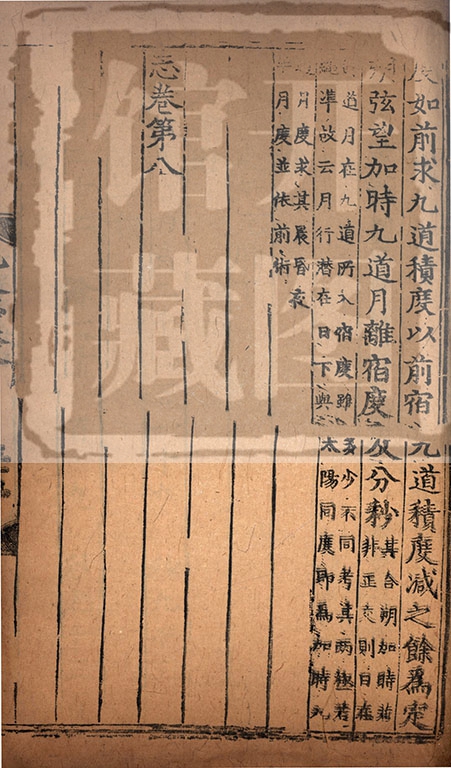 度如前求九道積度以前宿九道積度减之餘爲定
弦望加時九道月離宿度及分秒其合朔加時若
非正交則日在
道月在九道所入宿度雖多少不同考其兩極若
繩準故云月行潜在日下與太陽同度即爲加時九
月度求其晨昏夜
半月度並依前術
志卷第八
馆藏
图